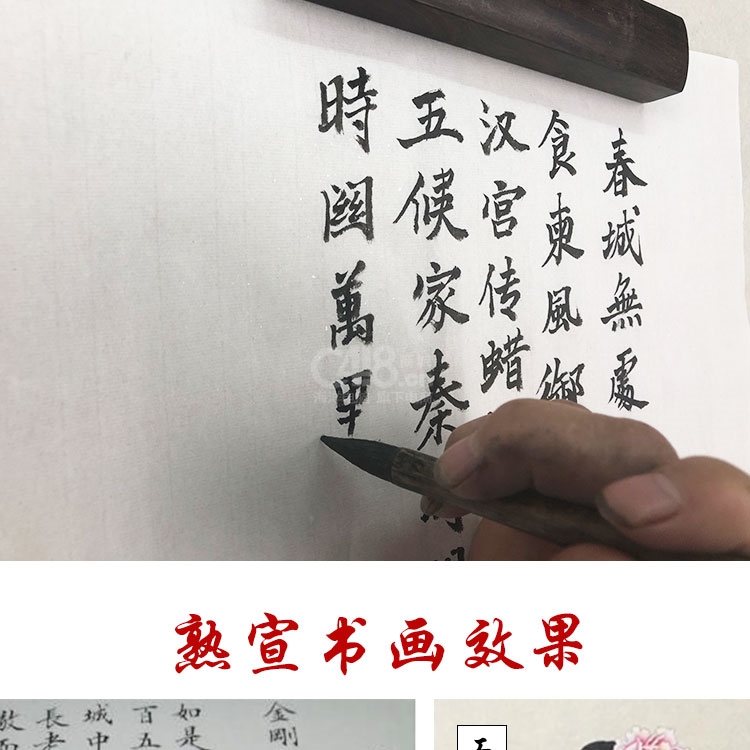 春城無處
食東風御
汉宫传蜡
五候家秦
時關萬里
熟宣书画效果
金剛
如是
百五
城中
長老